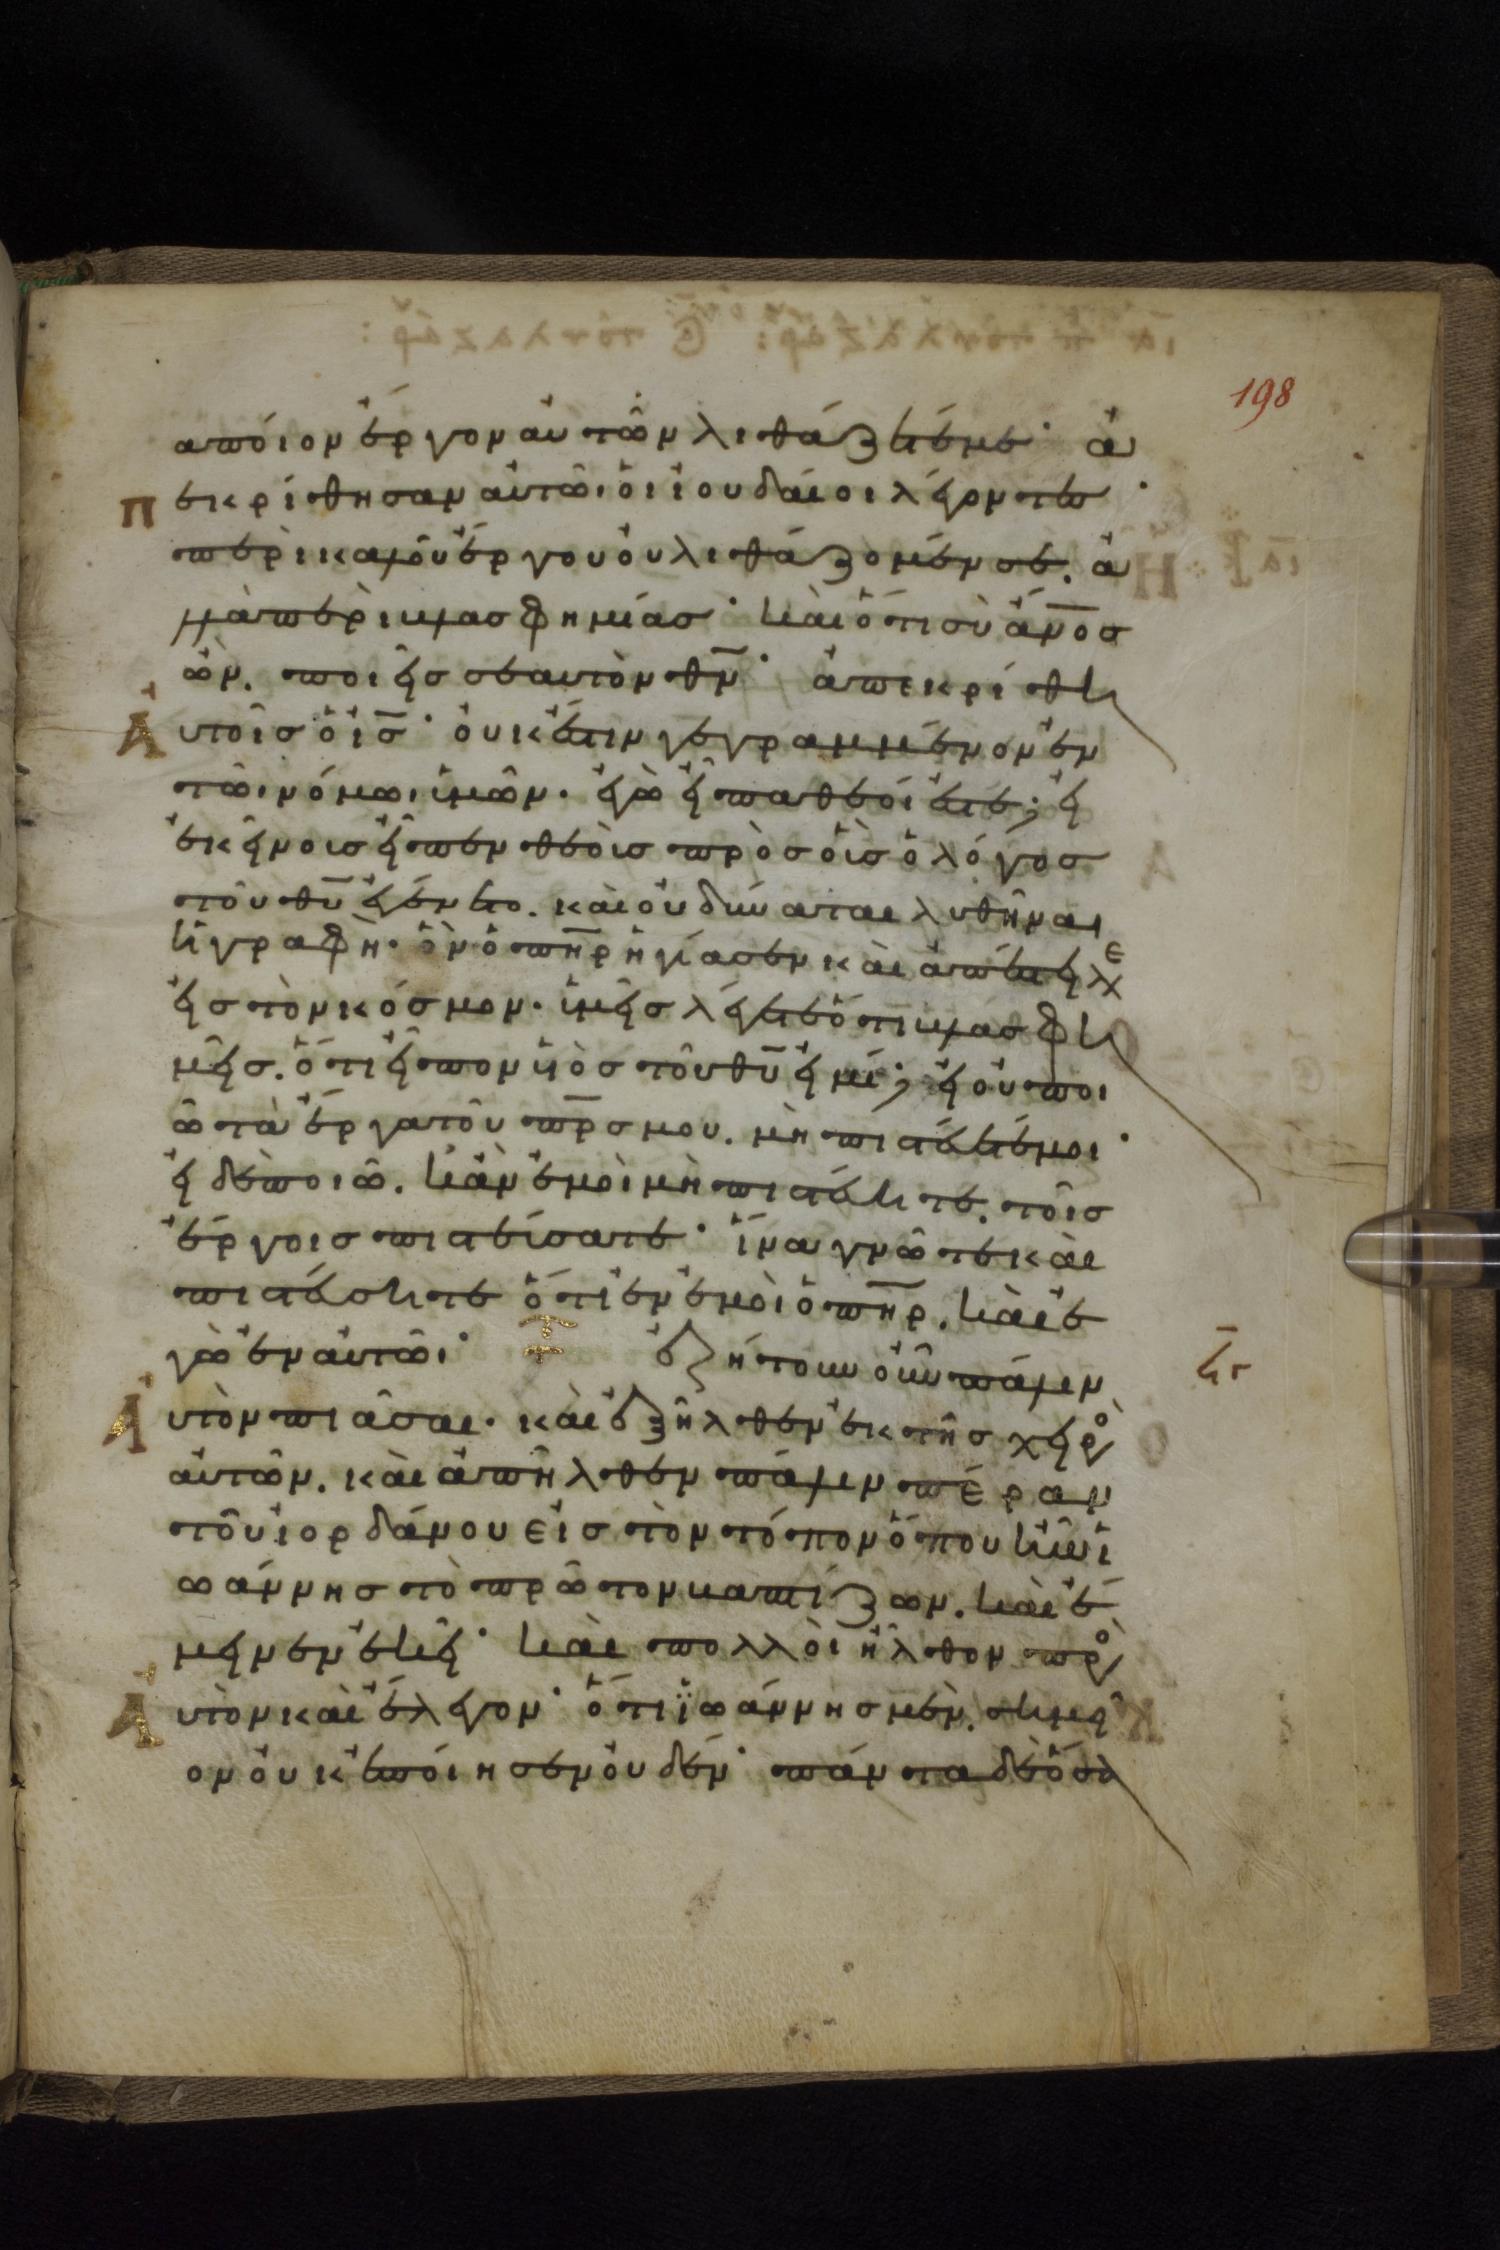 198
α ποίον ἔργον αὐτῶν λιθάζετέ με· ἀ
πεκρίθησαν αὐτῶι οἱ ἰουδαῖοι λέγοντες·
περὶ καλοῦ ἔργου οὐ λιθάζομέν σε. ἀλ
λὰ περὶ βλασφημίας· καὶ ὅτι σὺ ἄν̅ο̅ς
ὢν. ποιεῖς σεαυτὸν θ̅ν̅· ἀπεκρίθη
Αὐτοῖς ὁ ι̅ς̅· οὐκ ἔστιν γεγραμμένον ἐν
τῶι νόμωι ὑμῶν. ἐγὼ εἶπα θεοί ἐστε; εἰ
ἐκείνοις εἶπεν θεοὺς πρὸς οὓς ὁ λόγος
τοῦ θ̅υ̅ ἐγένετο. καὶ οὐ δύναται λυθῆναι
ἡ γραφή. ὃν ὁ π̅η̅ρ̅ ἡγίασεν καὶ ἀπέστειλεν
εἰς τὸν κόσμον. ὑμεῖς λέγετε ὅτι βλασφη
μεῖς. ὅτι εἶπον υἱὸς τοῦ θ̅υ̅ εἰμί; εἰ οὐ ποι
ῶ τὰ ἔργα τοῦ π̅ρ̅ς̅ μου. μὴ πιστεύετέ μοι·
εἰ δὲ ποιῶ. κἂν ἐμοὶ μὴ πιστεύητε. τοῖς
ἔργοις πιστεύσατε· ἵνα γνῶτε καὶ
πιστεύσητε ὅτι ἐν ἐμοὶ ὁ π̅η̅ρ̅. καὶ ἐ
γὼ ἐν αὐτῶι· ἐζήτουν οὖν πάλιν
Αὐτὸν πιᾶσαι. καὶ ἐξῆλθεν ἐκ τῆς χειρὸς
αὐτῶν. καὶ ἀπῆλθεν πάλιν πέραν
τοῦ ἰορδάνου εἰς τὸν τόπον ὅπου ἦν ἰ
ωάννης τὸ πρῶτον βαπτίζων. καὶ ἔ
μεινεν ἐκεῖ· καὶ πολλοὶ ἦλθον πρὸς
Αὐτὸν καὶ ἔλεγον· ὅτι ϊωάννης μὲν σημεῖ
ον οὐκ ἐποίησεν οὐδέν· πάντα δὲ ὅσα